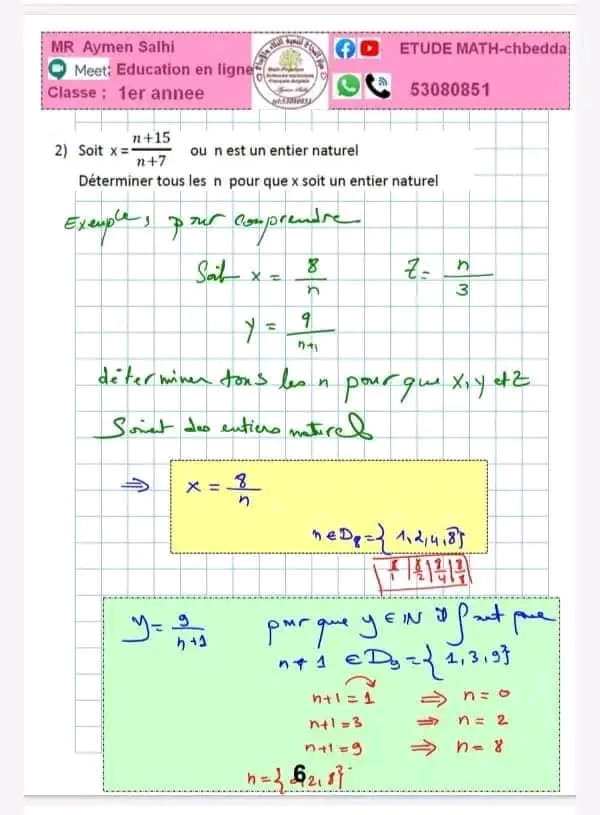 MR Aymen Salhi
ETUDE MATH-chbedda
Meet: Education en ligne
Classe : 1er annee
53080851
2) Soit x = n+15/n+7 ou n est un entier naturel
Déterminer tous les n pour que x soit un entier naturel
Exemples pour comprendre
Soit x = 8/n Z = n/3
y = 9/n+1
déterminer tous les n pour que x, y et Z
Soient des entiers naturels
⇒ x = 8/n
n ∈ D8 = { 1, 2, 4, 8}
8/1 | 8/2 | 8/4 | 8/8
y = 9/n+1 pour que y ∈ IN il faut que
n+1 ∈ D9 = { 1, 3, 9}
n+1 = 1 ⇒ n = 0
n+1 = 3 ⇒ n = 2
n+1 = 9 ⇒ n = 8
6